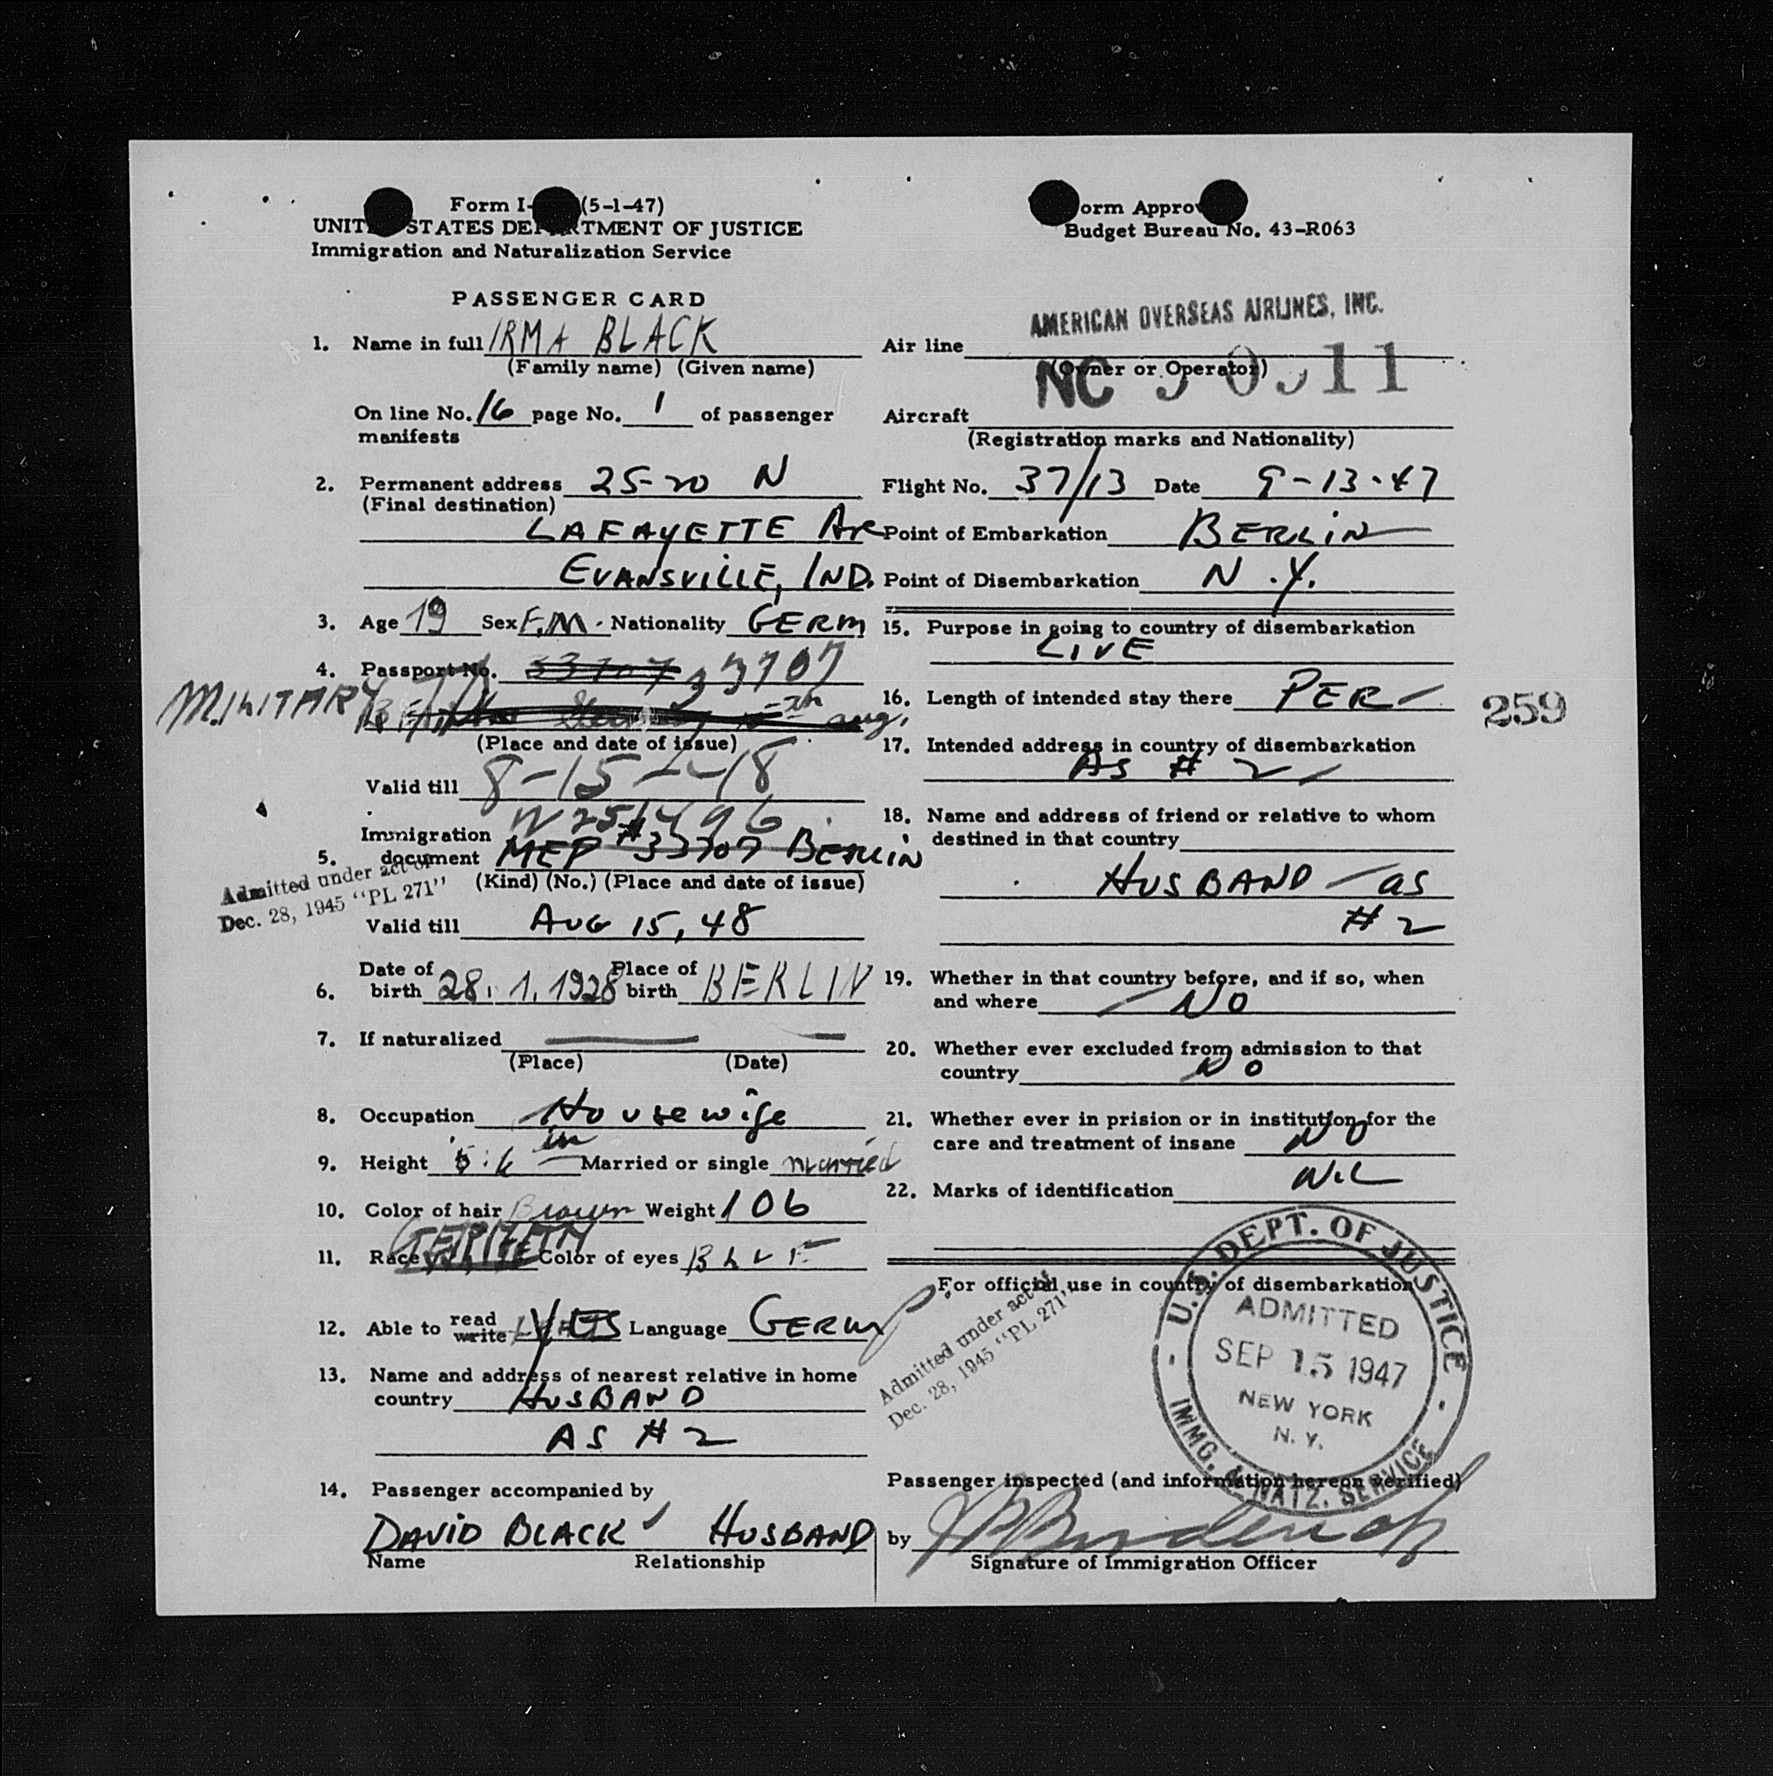 Form I- (5-1-47)
UNIT STATES DEP TMENT OF JUSTICE
Immigration and Naturalization Service
PASSENGER CARD
1. Name in full IRMA BLACK
(Family name) (Given name)
On line No. 16 page No. 1 of passenger
manifests
2. Permanent address 25-20 N
(Final destination)
LAFAYETTE Ave
EVANSVILLE, IND.
3. Age 19 Sex F.M. Nationality GERM
4. Passport No. 33707 33707
MILITARY
aug.
(Place and date of issue)
Valid till 8-15-48
Immigration
5. document MEP #33707 BERLIN
(Kind) (No.) (Place and date of issue)
Admitted under act of
Dec. 28, 1945 "PL 271"
Valid till AUG 15, 48
6. Date of birth 28. 1. 1928 Place of birth BERLIN
7. If naturalized
(Place) (Date)
8. Occupation Housewife
9. Height 5:6 in Married or single married
10. Color of hair Brown Weight 106
GERMAN
11. Race Color of eyes BLUE
12. Able to read write YES Language GERM
13. Name and address of nearest relative in home
country HUSBAND
AS #2
14. Passenger accompanied by
DAVID BLACK HUSBAND
Name Relationship
orm Approv
Budget Bureau No. 43-R063
AMERICAN OVERSEAS AIRLINES, INC.
Air line
(Owner or Operator)
NC
Aircraft
(Registration marks and Nationality)
Flight No. 37/13 Date 9-13-47
Point of Embarkation BERLIN
Point of Disembarkation N.Y.
15. Purpose in going to country of disembarkation
LIVE
16. Length of intended stay there PER-
259
17. Intended address in country of disembarkation
AS # 2
18. Name and address of friend or relative to whom
destined in that country
HUSBAND - as
# 2
19. Whether in that country before, and if so, when
and where - NO
20. Whether ever excluded from admission to that
country NO
21. Whether ever in prision or in institution for the
care and treatment of insane NO
22. Marks of identification NIL
For official use in country of disembarkation
Admitted under act of
Dec. 28, 1945 "PL 271"
U.S. DEPT. OF JUSTICE
ADMITTED
SEP 15 1947
NEW YORK
N. Y.
IMMG. & NATZ. SERVICE
Passenger inspected (and information hereon verified)
by
Signature of Immigration Officer